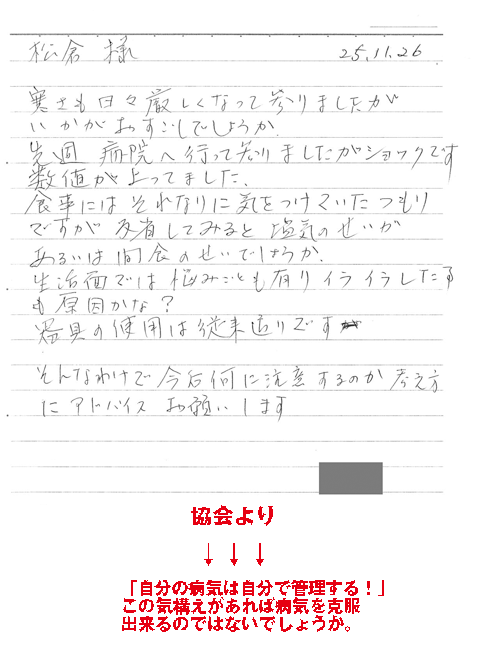 松倉 様 25.11.26
寒さも日々厳しくなって参りましたが
いかがおすごしでしょうか.
先週 病院へ行って参りましたがショックです
数値が上ってました.
食事にはそれなりに気をつけていたつもり
ですが 反省してみると 塩気のせいか
あるいは間食のせいでしょうか.
生活面では悩みごとも有りイライラした事
も原因かな?
器具の使用は従来通りです
そんなわけで今后何に注意するのか 考え方
にアドバイス お願いします
協会より
↓ ↓ ↓
「自分の病気は自分で管理する!」
この気構えがあれば病気を克服
出来るのではないでしょうか。